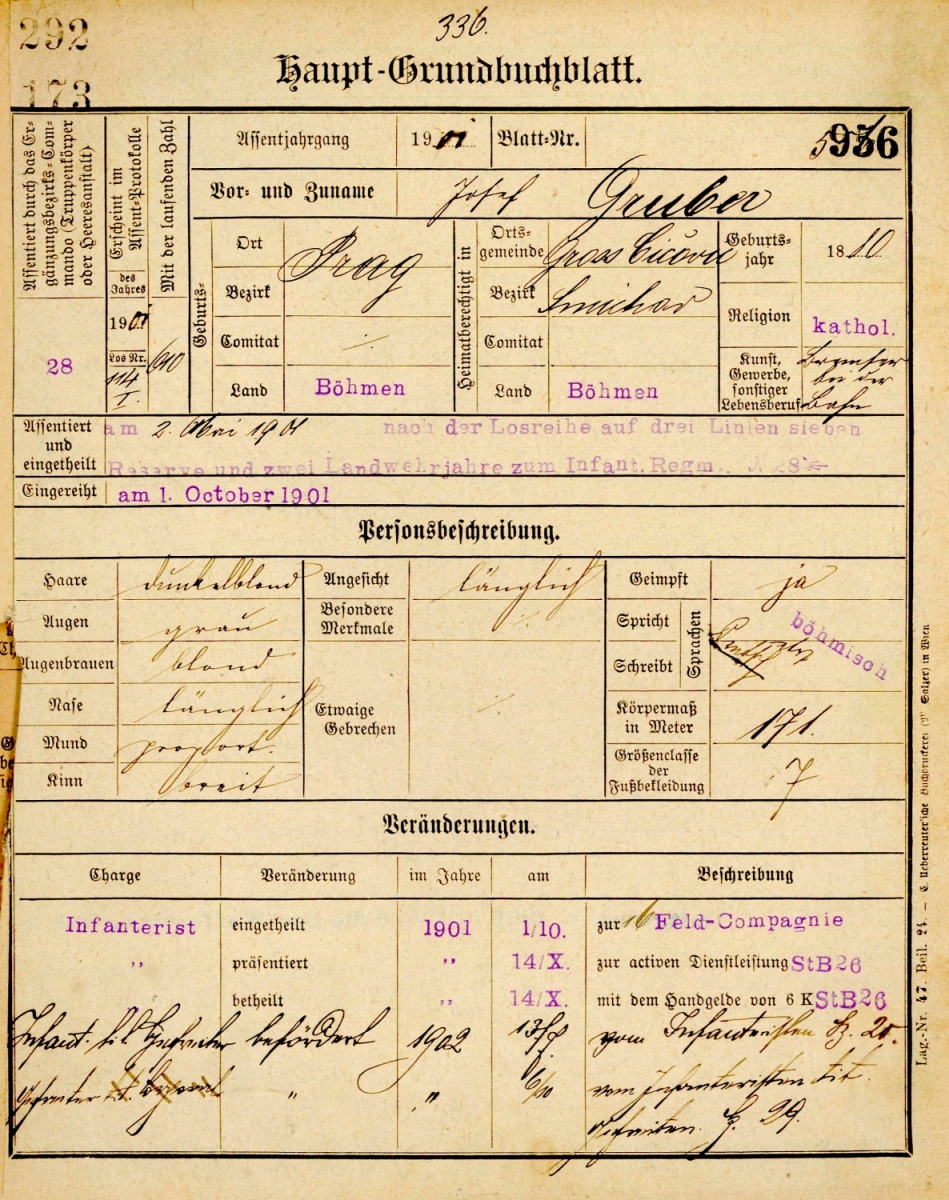 292
336.
173
Haupt-Grundbuchblatt.
Assentiert durch das Ergänzungsbezirks-Commando (Truppenkörper oder Heeresanstalt)
28
Erscheint im Assent-Protokolle
des Jahres
1901
Los Nr.
114
I.
Mit der laufenden Zahl
610
Assentjahrgang 1901 Blatt-Nr. 936
Vor- und Zuname Josef Gruber
Geburts-
Ort Prag
Bezirk
Comitat ./.
Land Böhmen
Heimatberechtigt in
Ortsgemeinde Gross Čičovic
Bezirk Smichov
Comitat
Land Böhmen
Geburtsjahr 1880
Religion kathol.
Kunst, Gewerbe, sonstiger Lebensberuf Bremser bei der Bahn
Assentiert und eingetheilt am 2. Mai 1901 nach der Losreihe auf drei Linien sieben
Reserve und zwei Landwehrjahre zum Infant. Regm. N 28
Eingereiht am 1. October 1901
Personsbeschreibung.
Haare dunkelblond
Augen grau
Augenbrauen blond
Nase länglich
Mund proport.
Kinn breit
Angesicht länglich
Besondere Merkmale ./.
Etwaige Gebrechen ./.
Geimpft ja
Spricht
Schreibt
Sprachen böhmisch
Körpermaß in Meter 171.
Größenclasse der Fußbekleidung 7
Veränderungen.
Charge Veränderung im Jahre am Beschreibung
Infanterist eingetheilt 1901 1/10. zur 16 Feld-Compagnie
" präsentiert " 14/X. zur activen Dienstleistung StB26
betheilt " 14/X. mit dem Handgelde von 6 K StB26
Infant. tit. Gefreiter befördert 1902 vom Infanteristen
Gefreiter " " vom Infanteristen tit.
Gefreiten. 29.
Lag.-Nr. 47. Beil. 24. — C. Ueberreuter'sche Buchdruckerei (M. Salzer) in Wien